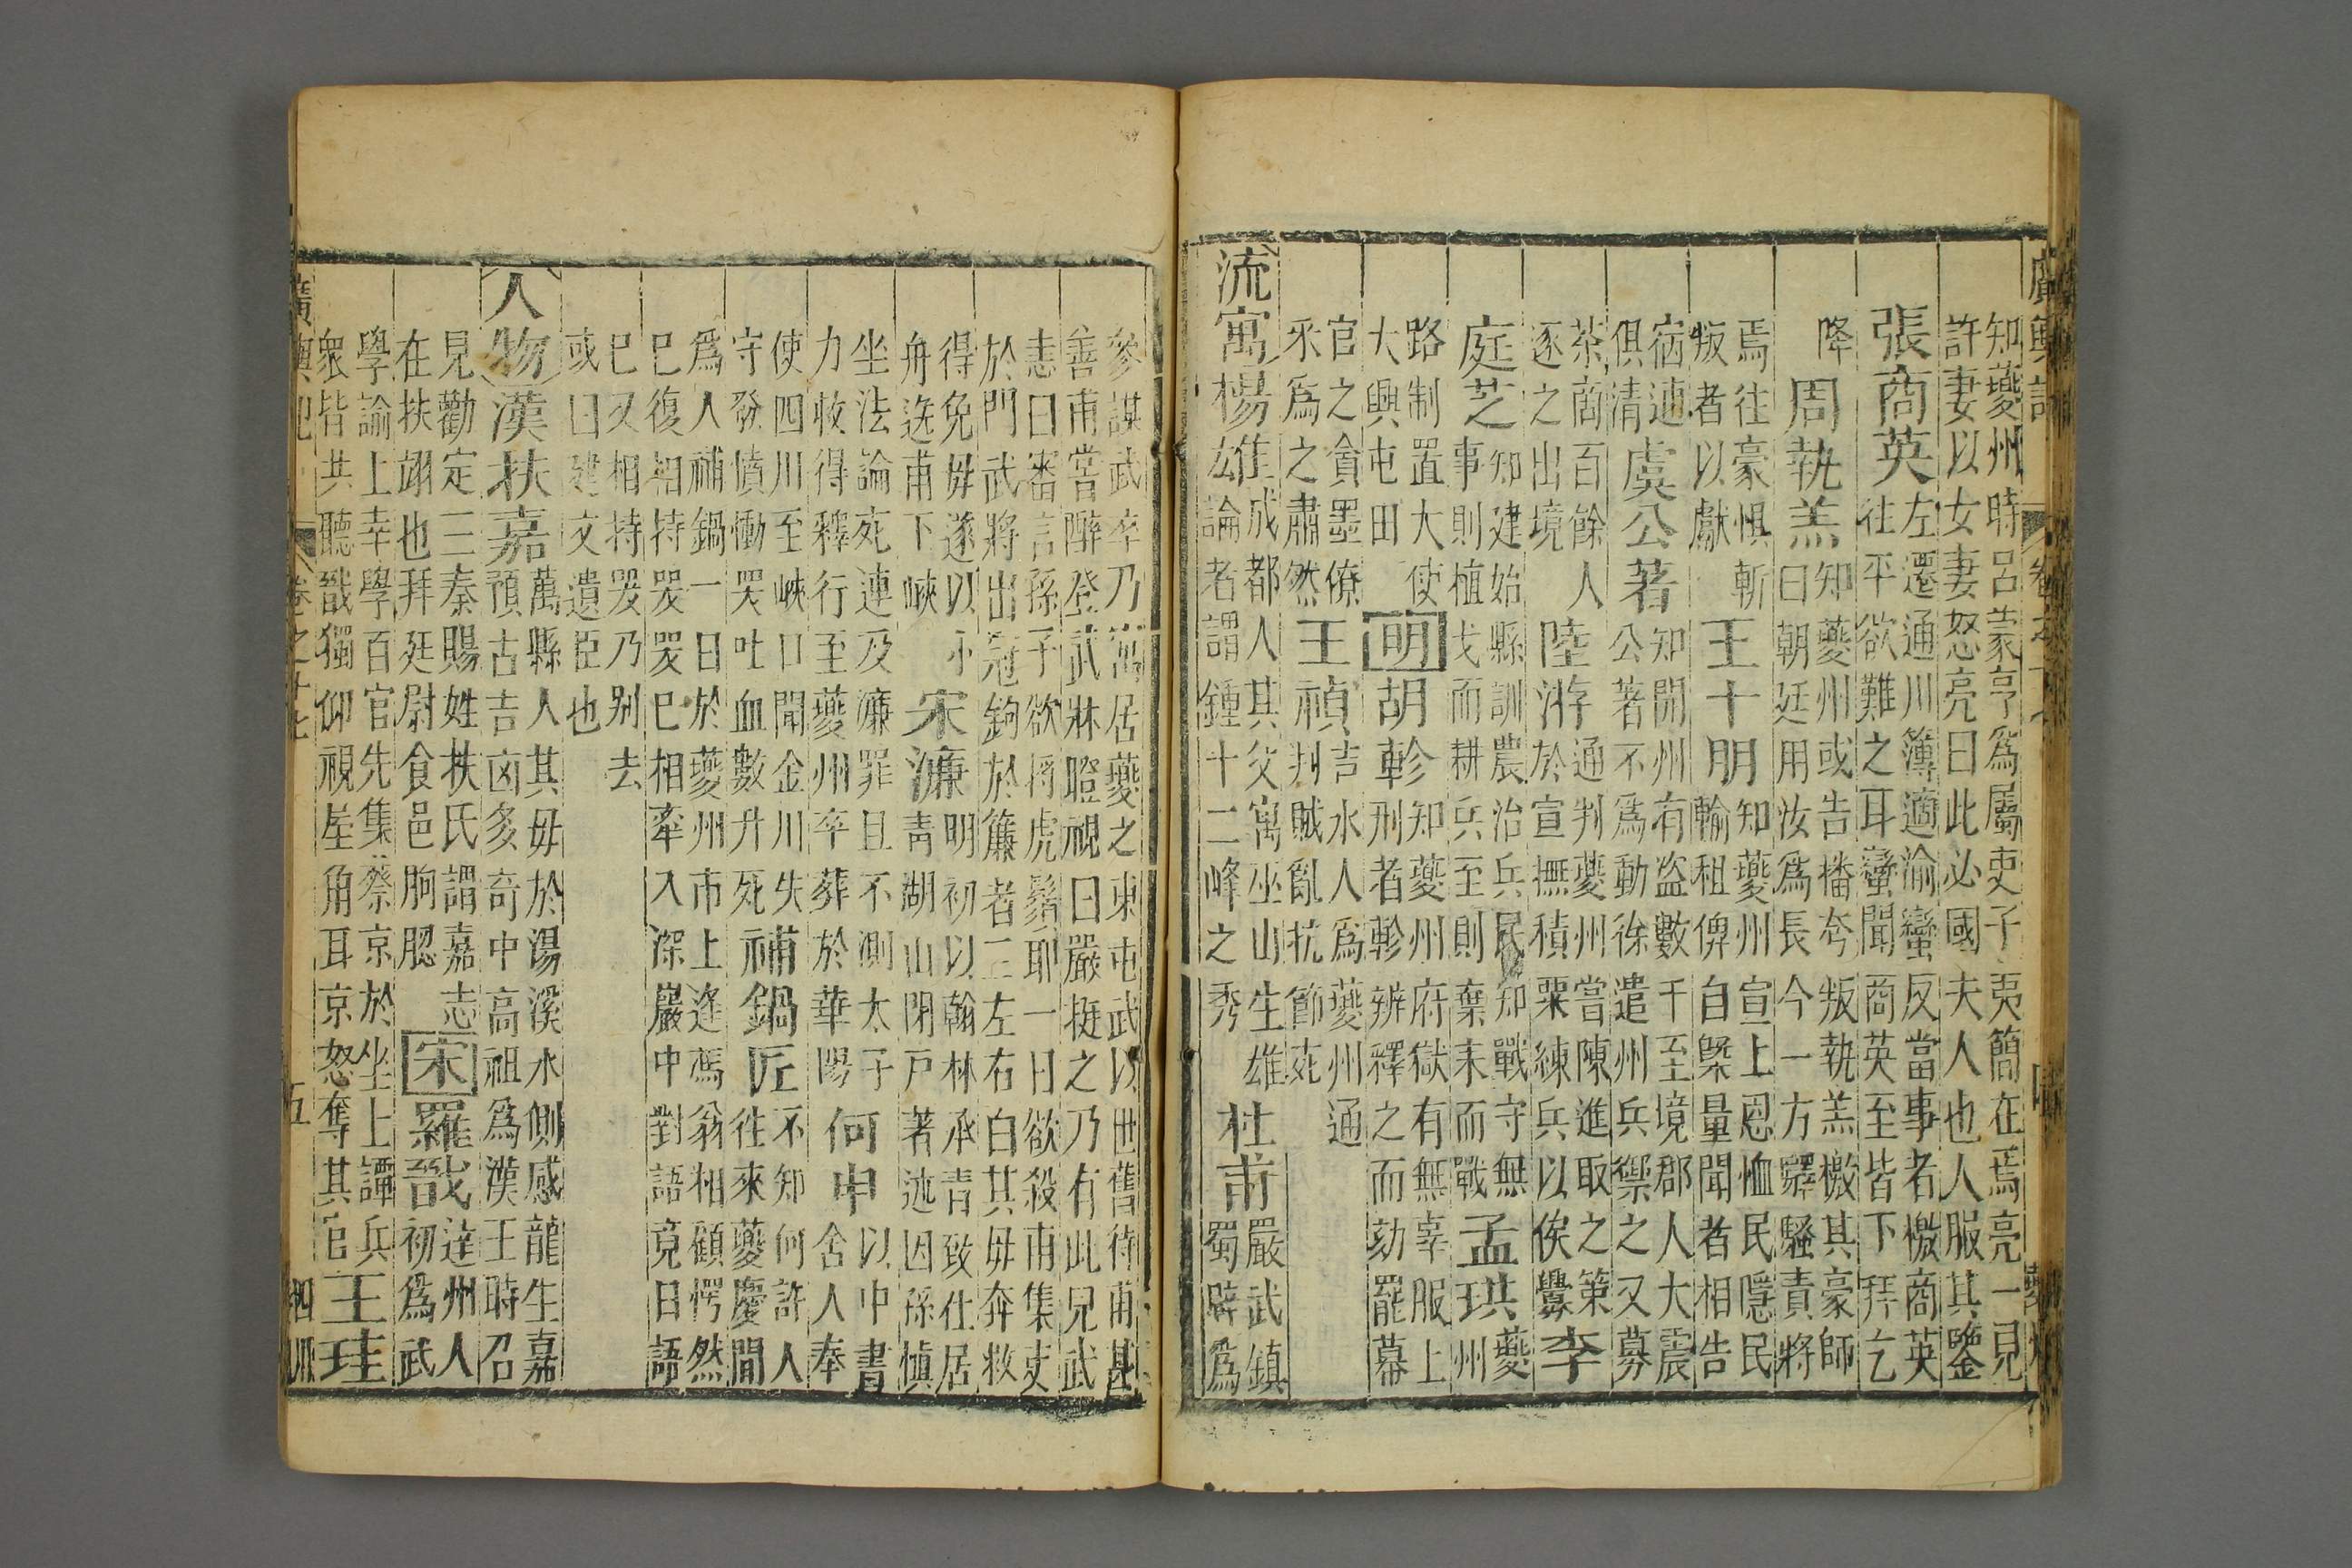 廣輿記 卷之十七 四 夔州
知夔州時呂蒙亨爲屬吏子夷簡在焉亮一見
許妻以女妻怒亮曰此必國夫人也人服其鑒
張商英 左遷通川簿適渝蠻反當事者檄商英
往平欲難之耳蠻聞商英至皆下拜乞
降 周執羔 知夔州或告播夸叛執羔檄其豪師
曰朝廷用汝爲長今一方驛騷責將
焉往豪惧斬
叛者以獻 王十朋 知夔州宣上恩恤民隱民
輸租俾自槩量聞者相告
宿逋
俱清 虞公著 知開州有盗數千至境郡人大震
公著不爲動徐遣州兵禦之又募
茶商百餘人
逐之出境 陸游 通判夔州嘗陳進取之策
於宣撫積粟練兵以俟釁 李
庭芝 知建始縣訓農治兵民知戰守無
事則植戈而耕兵至則棄耒而戰 孟珙 夔
州
路制置大使
大興屯田 明 胡軫 知夔州府獄有無辜服上
刑者軫辨釋之而劾罷幕
官之貪墨僚
寀爲之肅然 王禎 吉水人爲夔州通
判賊亂抗節死
流寓 楊雄 成都人其父寓巫山生雄
論者謂鍾十二峰之秀 杜甫 嚴武鎮
蜀辟爲
參謀武卒乃寓居夔之東屯武以世舊待甫甚
善甫嘗醉登武牀瞪視曰嚴挺之乃有此兒武
恚曰審言孫子欲捋虎鬚耶一日欲殺甫集吏
於門武將出冠鉤於簾者三左右白其母奔救
得免母遂以小
舟送甫下峽 宋濂 明初以翰林承青致仕居
青湖山閉戸著述因孫慎
坐法論死連及濂罪且不測太子
力救得釋行至夔州卒葬於華陽 何申 以中書
舍人奉
使四川至峽口聞金川失
守發憤慟哭吐血數升死 補鍋匠 不知何許人
往來夔慶間
爲人補鍋一日於夔州市上逢馮翁相顧愕然
巳復相持哭哭巳相牽入深巖中對語竟日語
巳又相持哭乃别去
或曰建文遺臣也
人物 漢 扶嘉 萬縣人其母於湯溪水側感龍生嘉
預占吉凶多奇中高祖爲漢王時召
見勸定三秦賜姓扶氏謂嘉志
在扶翊也拜廷尉食邑朐䏰 宋 羅戩 達州人
初爲武
學諭上幸學百官先集蔡京於坐上譚兵
衆皆共聽戩獨仰視屋角耳京怒奪其官 王珪
廣輿記 卷之十七 五 四川